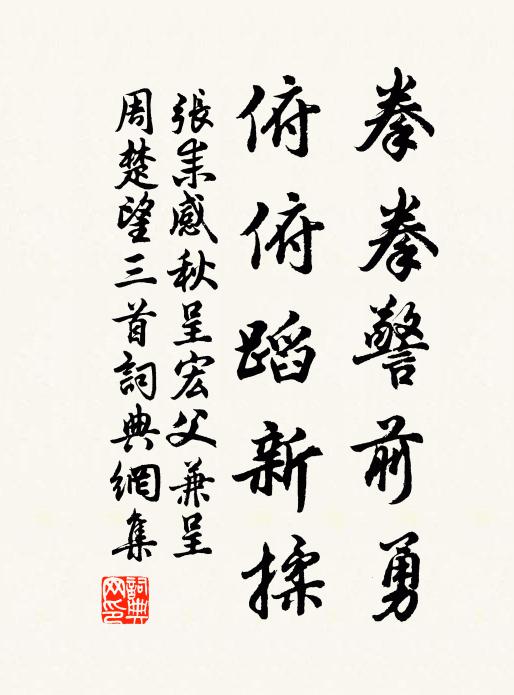 拳拳警前勇
俯俯蹈新揉
張耒感秋呈宏父兼呈
周楚望三首詞典網集
詞典網印